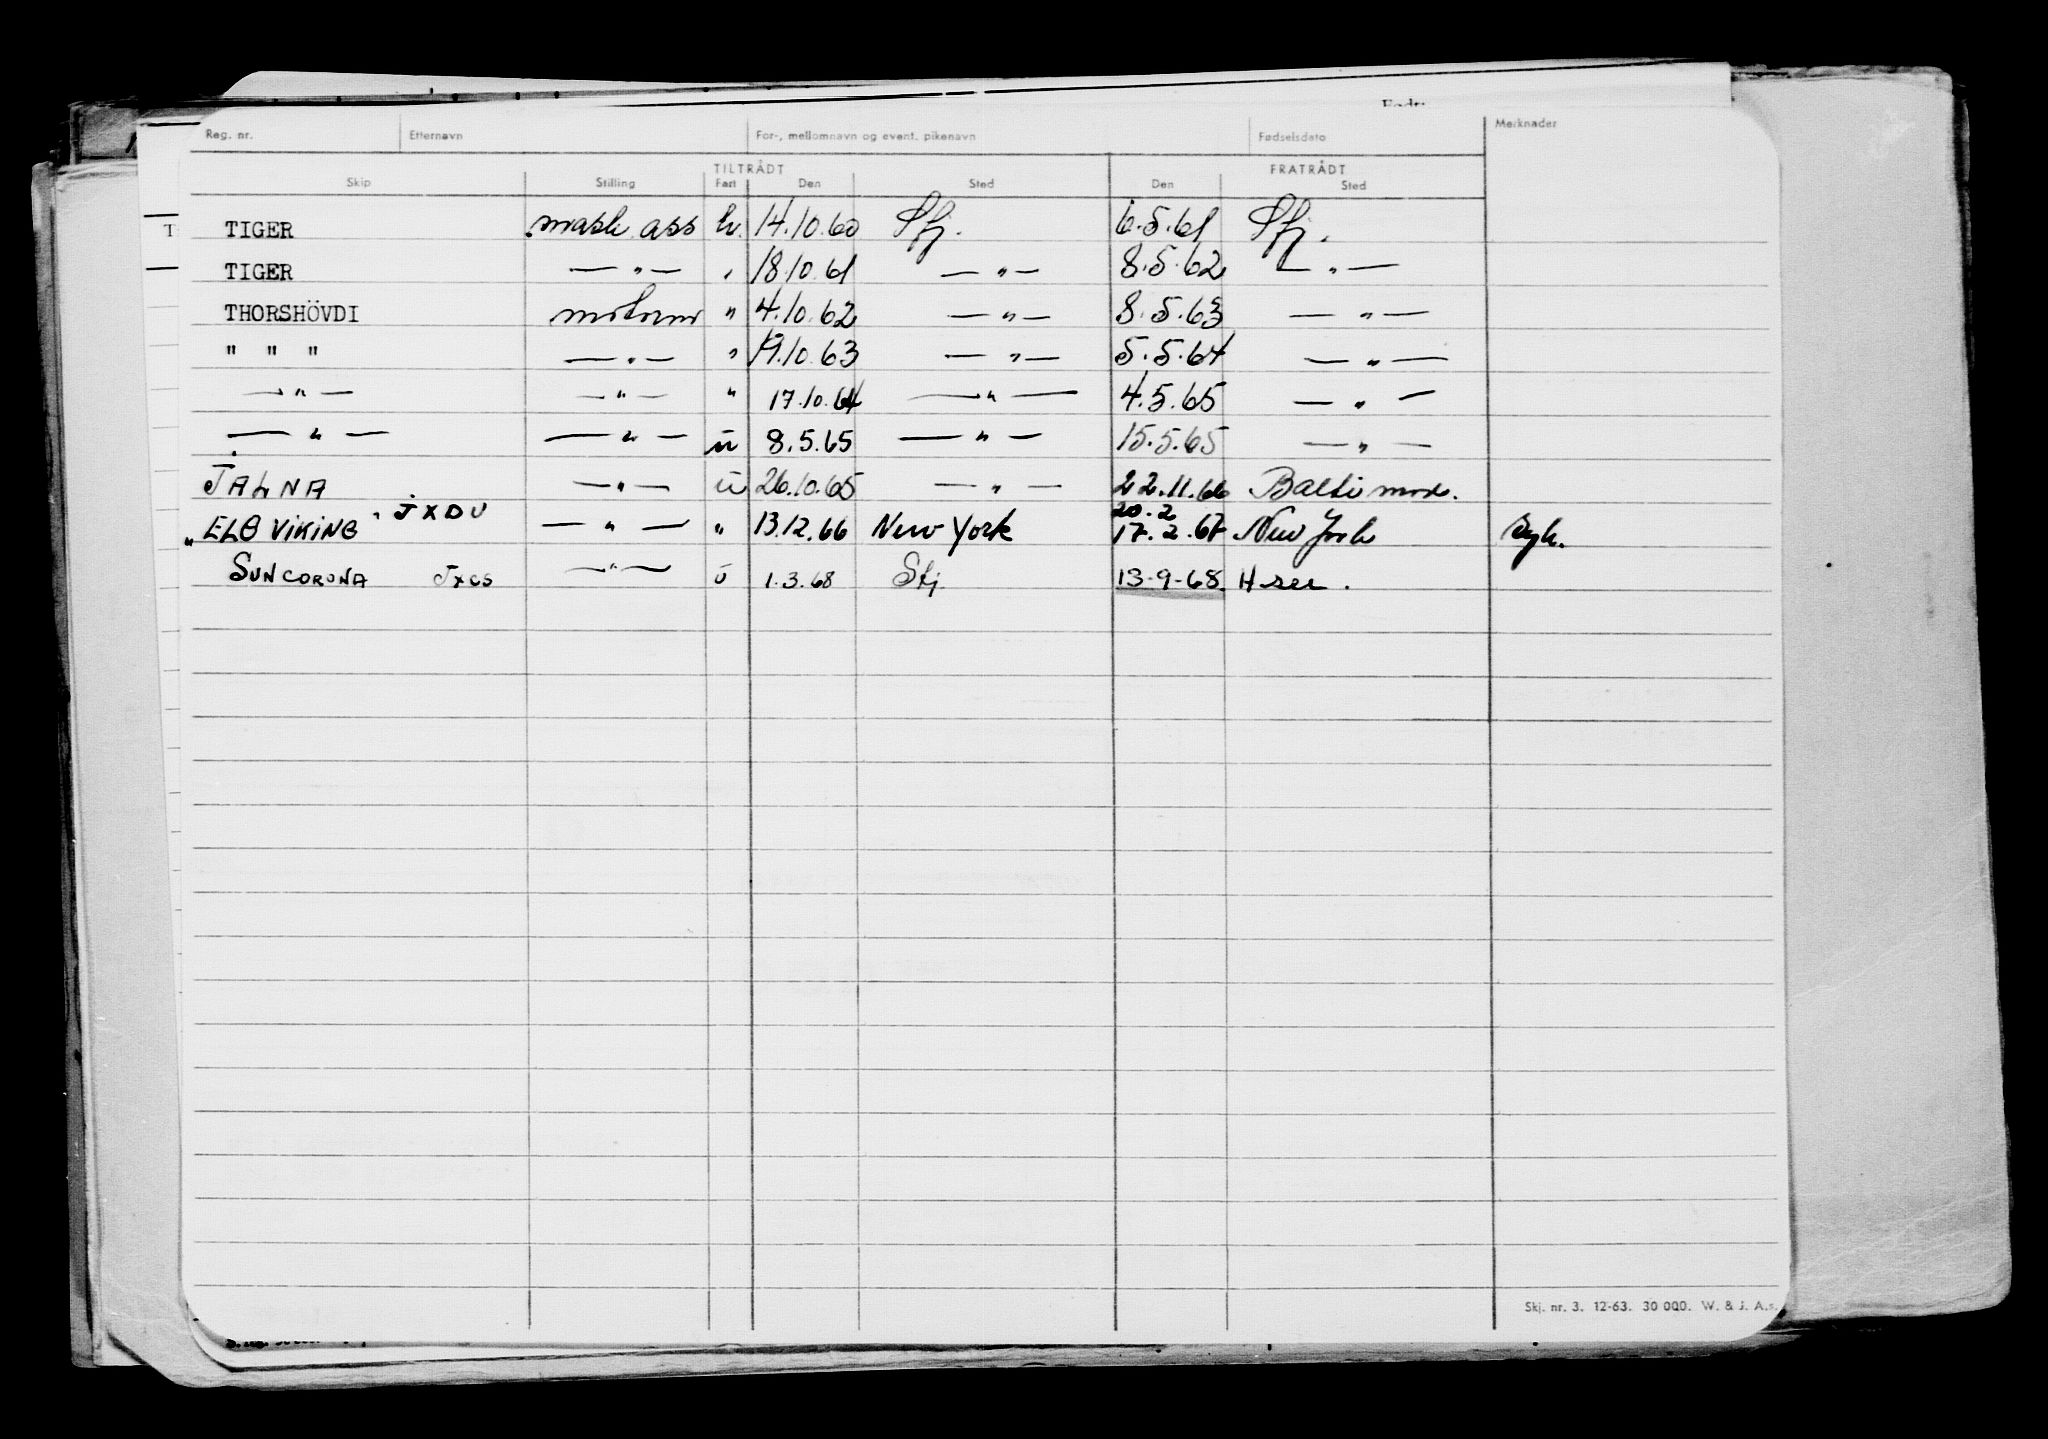 Reg. nr. Etternavn For-, mellomnavn og event. pikenavn Fødselsdato Merknader
TILTRÅDT FRATRÅDT
Skip Stilling Fart Den Sted Den Sted
T TIGER mask ass h. 14.10.60 Sfj. 6.5.61 Sfj.
TIGER —"— " 18.10.61 —"— 8.5.62 —"—
THORSHÖVDI motorm " 4.10.62 —"— 8.5.63 —"—
" " " —"— " 19.10.63 —"— 5.5.64 —"—
—"— —"— " 17.10.64 —"— 4.5.65 —"—
—"— —"— u 8.5.65 —"— 15.5.65 —"—
JALNA —"— u 26.10.65 —"— 22.11.66 Baltimore.
20.2
"ELB VIKING" JXDU —"— " 13.12.66 New York 17.2.67 New York syk.
SUNCORONA JXCS —"— u 1.3.68 Sfj. 13-9-68.
Skj. nr. 3. 12-63. 30 000. W. & J. A.s.